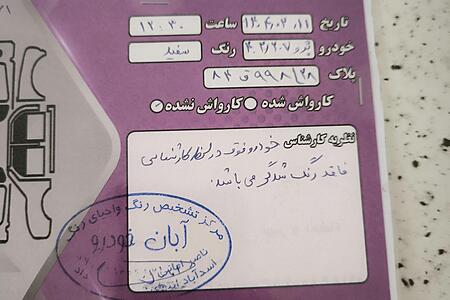 تاریخ ۱۴۰۲،۰۲،۱۱ ساعت ۱۲:۳۰
خودرو پژو ۲۰۷ رنگ سفید
پلاک ۲۸ | ۹۹۸ ق ۸۴
کارواش شده کارواش نشده
نظریه کارشناس خودرو فوق در نظر کارشناسی
فاقد رنگ شدگی می باشد.
مرکز تشخیص رنگ واحیای رنگ
آبان خودرو
ناصر
اسدآباد